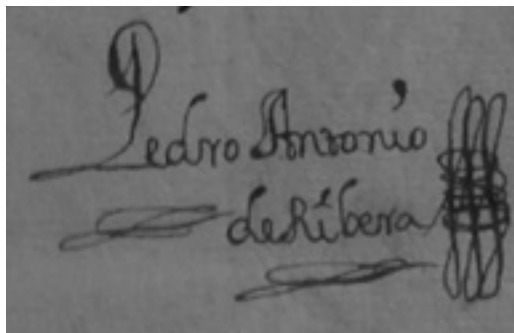 Pedro Antonio
de Ribera